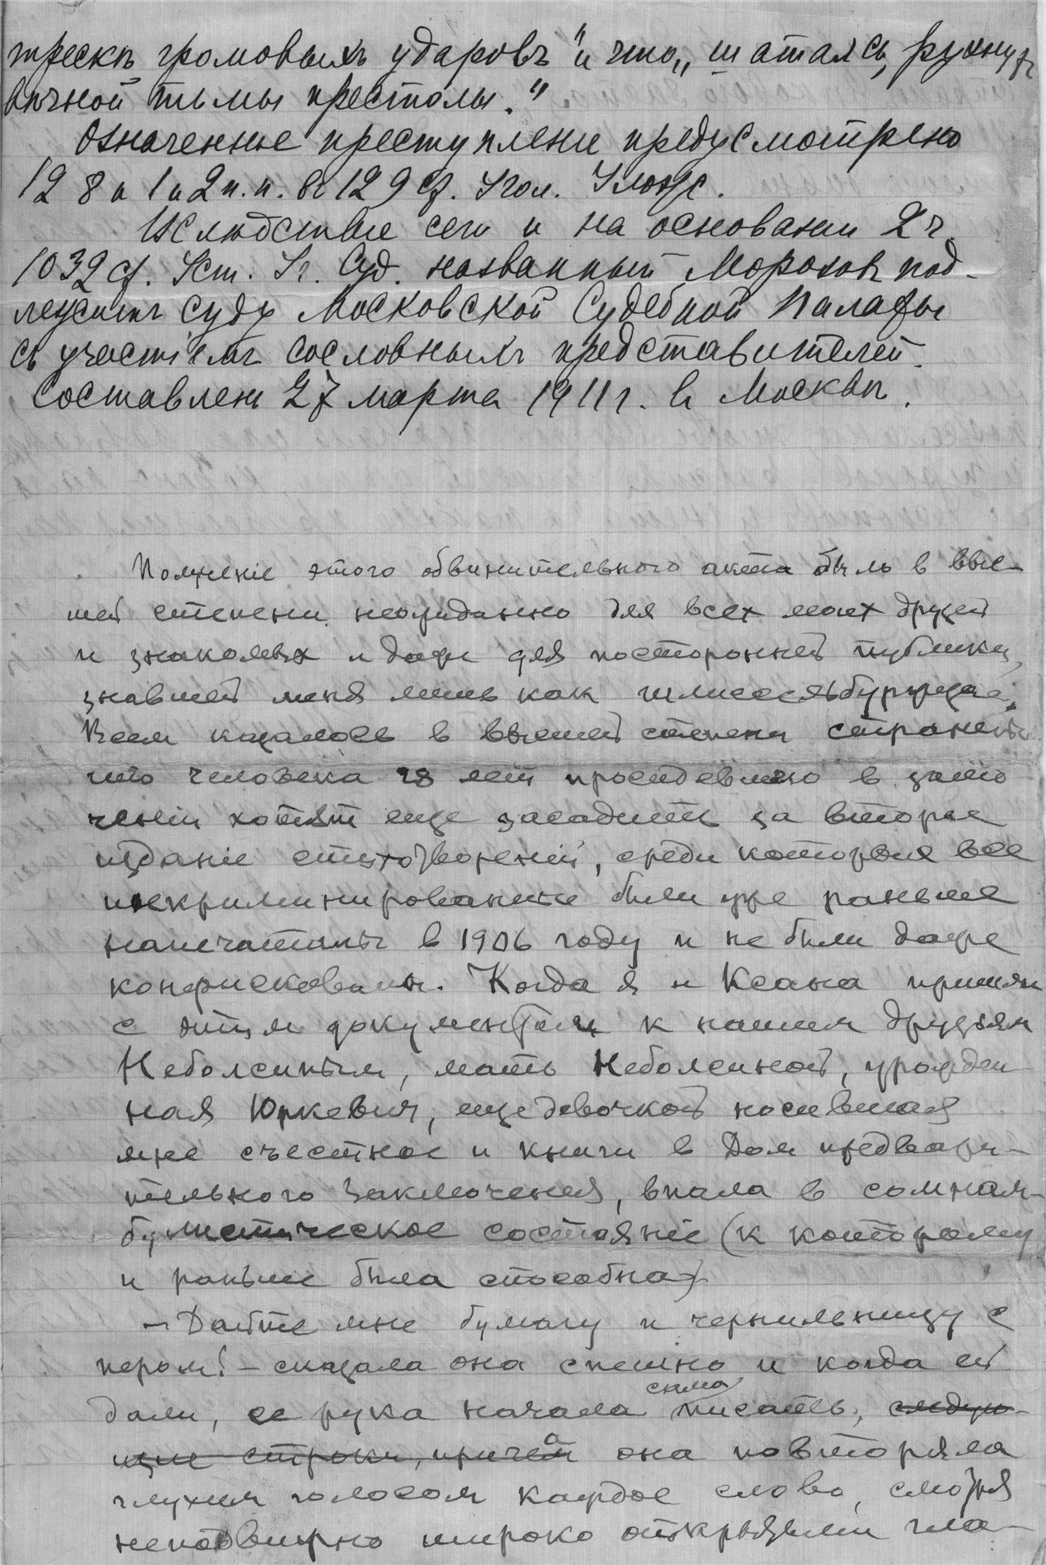 трескъ громовыхъ ударовъ" и что „шатаясь, рухнутъ
вѣчной тьмы престолы."
Означенное преступленіе предусмотрено
128 и 1 и 2 п.п. 129 ст. Угол. Улож.
Вслѣдствіе сего и на основаніи 2 ч.
1032 ст. Уст. Уг. Суд. названный Морозовъ под-
лежитъ суду Московской Судебной Палаты
съ участіемъ сословныхъ представителей.
Составленъ 27 марта 1911 г. въ Москвѣ.
Полученіе этого обвинительного акта было в выс-
шей степени неожиданно для всех моих друзей
и знакомых и даже для посторонней публики,
знавшей меня лишь как шлиссельбуржца.
Всем казалось в высшей степени странным
что человека 28 лет просидевшего в заклю
ченіи хотят еще засадить за второе
изданіе стихотвореній, среди которых все
инкриминированные были уже раньше
напечатаны в 1906 году и не были даже
конфискованы. Когда я и Ксана пришли
с этим документом к нашим друзьям
Неболсиным, мать Неболсиной, урожден
ная Юркевич, еще девочкой носившая
мне съестное и книги в Дом предвари-
тельного заключения, впала в сомнам-
булистическое состояніе (к которому
и раньше была способна)
— Дайте мне бумагу и чернильницу с
пером! – сказала она спешно и когда ей
дали, ее рука начала сама писать, следую-
щие строки, причем а она повторяла
глухим голосом каждое слово, смотря
неподвижно широко открытыми гла-